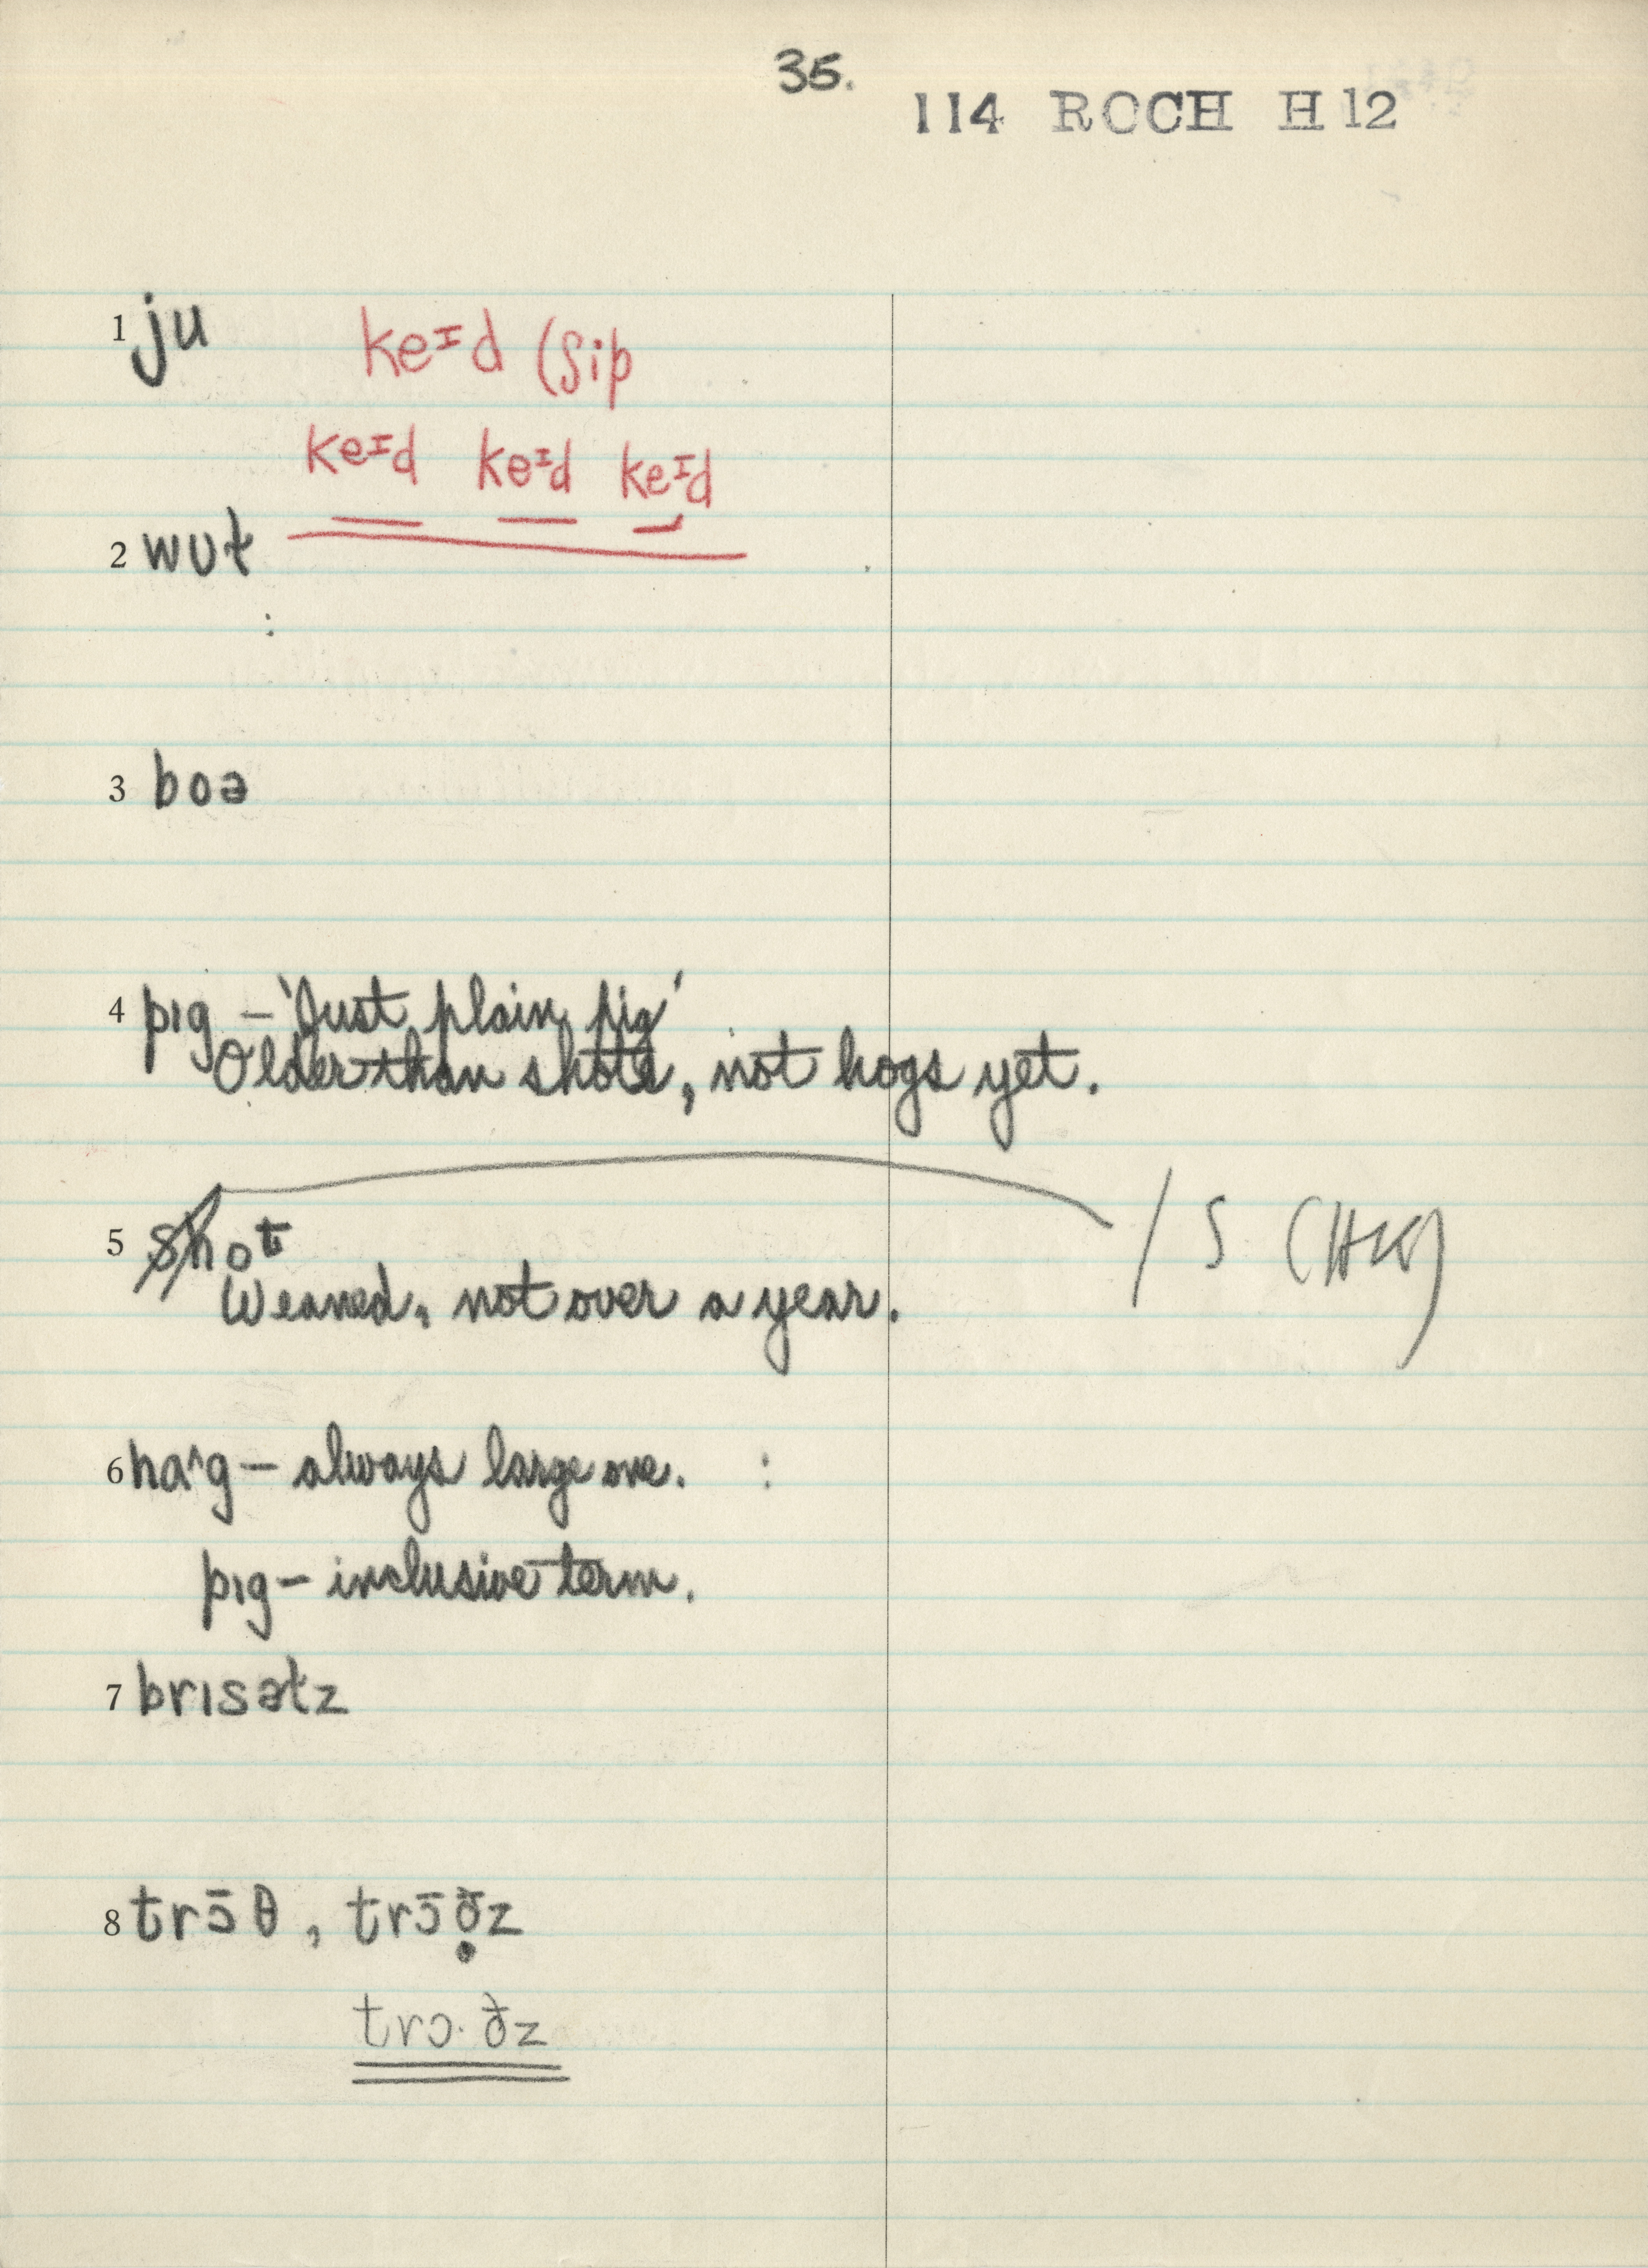 35.
114 ROCH H 12
1 ju keɪd (ʃip
keɪd keɪd keɪd
2 wʊt
:
3 boə
4 pɪg – 'Just plain pig'
Older than shots, not hogs yet.
5 shot / ʃ (HK)
Weaned, not over a year.
6 ha^g – always large one. :
pɪg – inclusive term.
7 brɪsətz
8 trɔ̄θ, trɔ̄ð̣z
trɔ·ðz